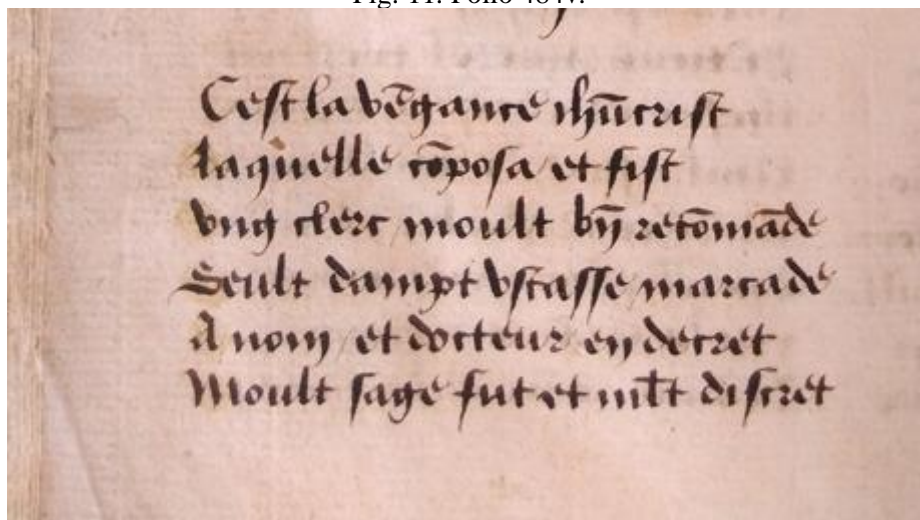 Fig. 11. Folio 484v.
Cest la vēgance ihūcrist
laquelle cōposa et fist
vng clerc moult bn̄ recōmāde
Seult dampt vstasse marcade
A nom et docteur en decret
Moult sage fut et mlt discret